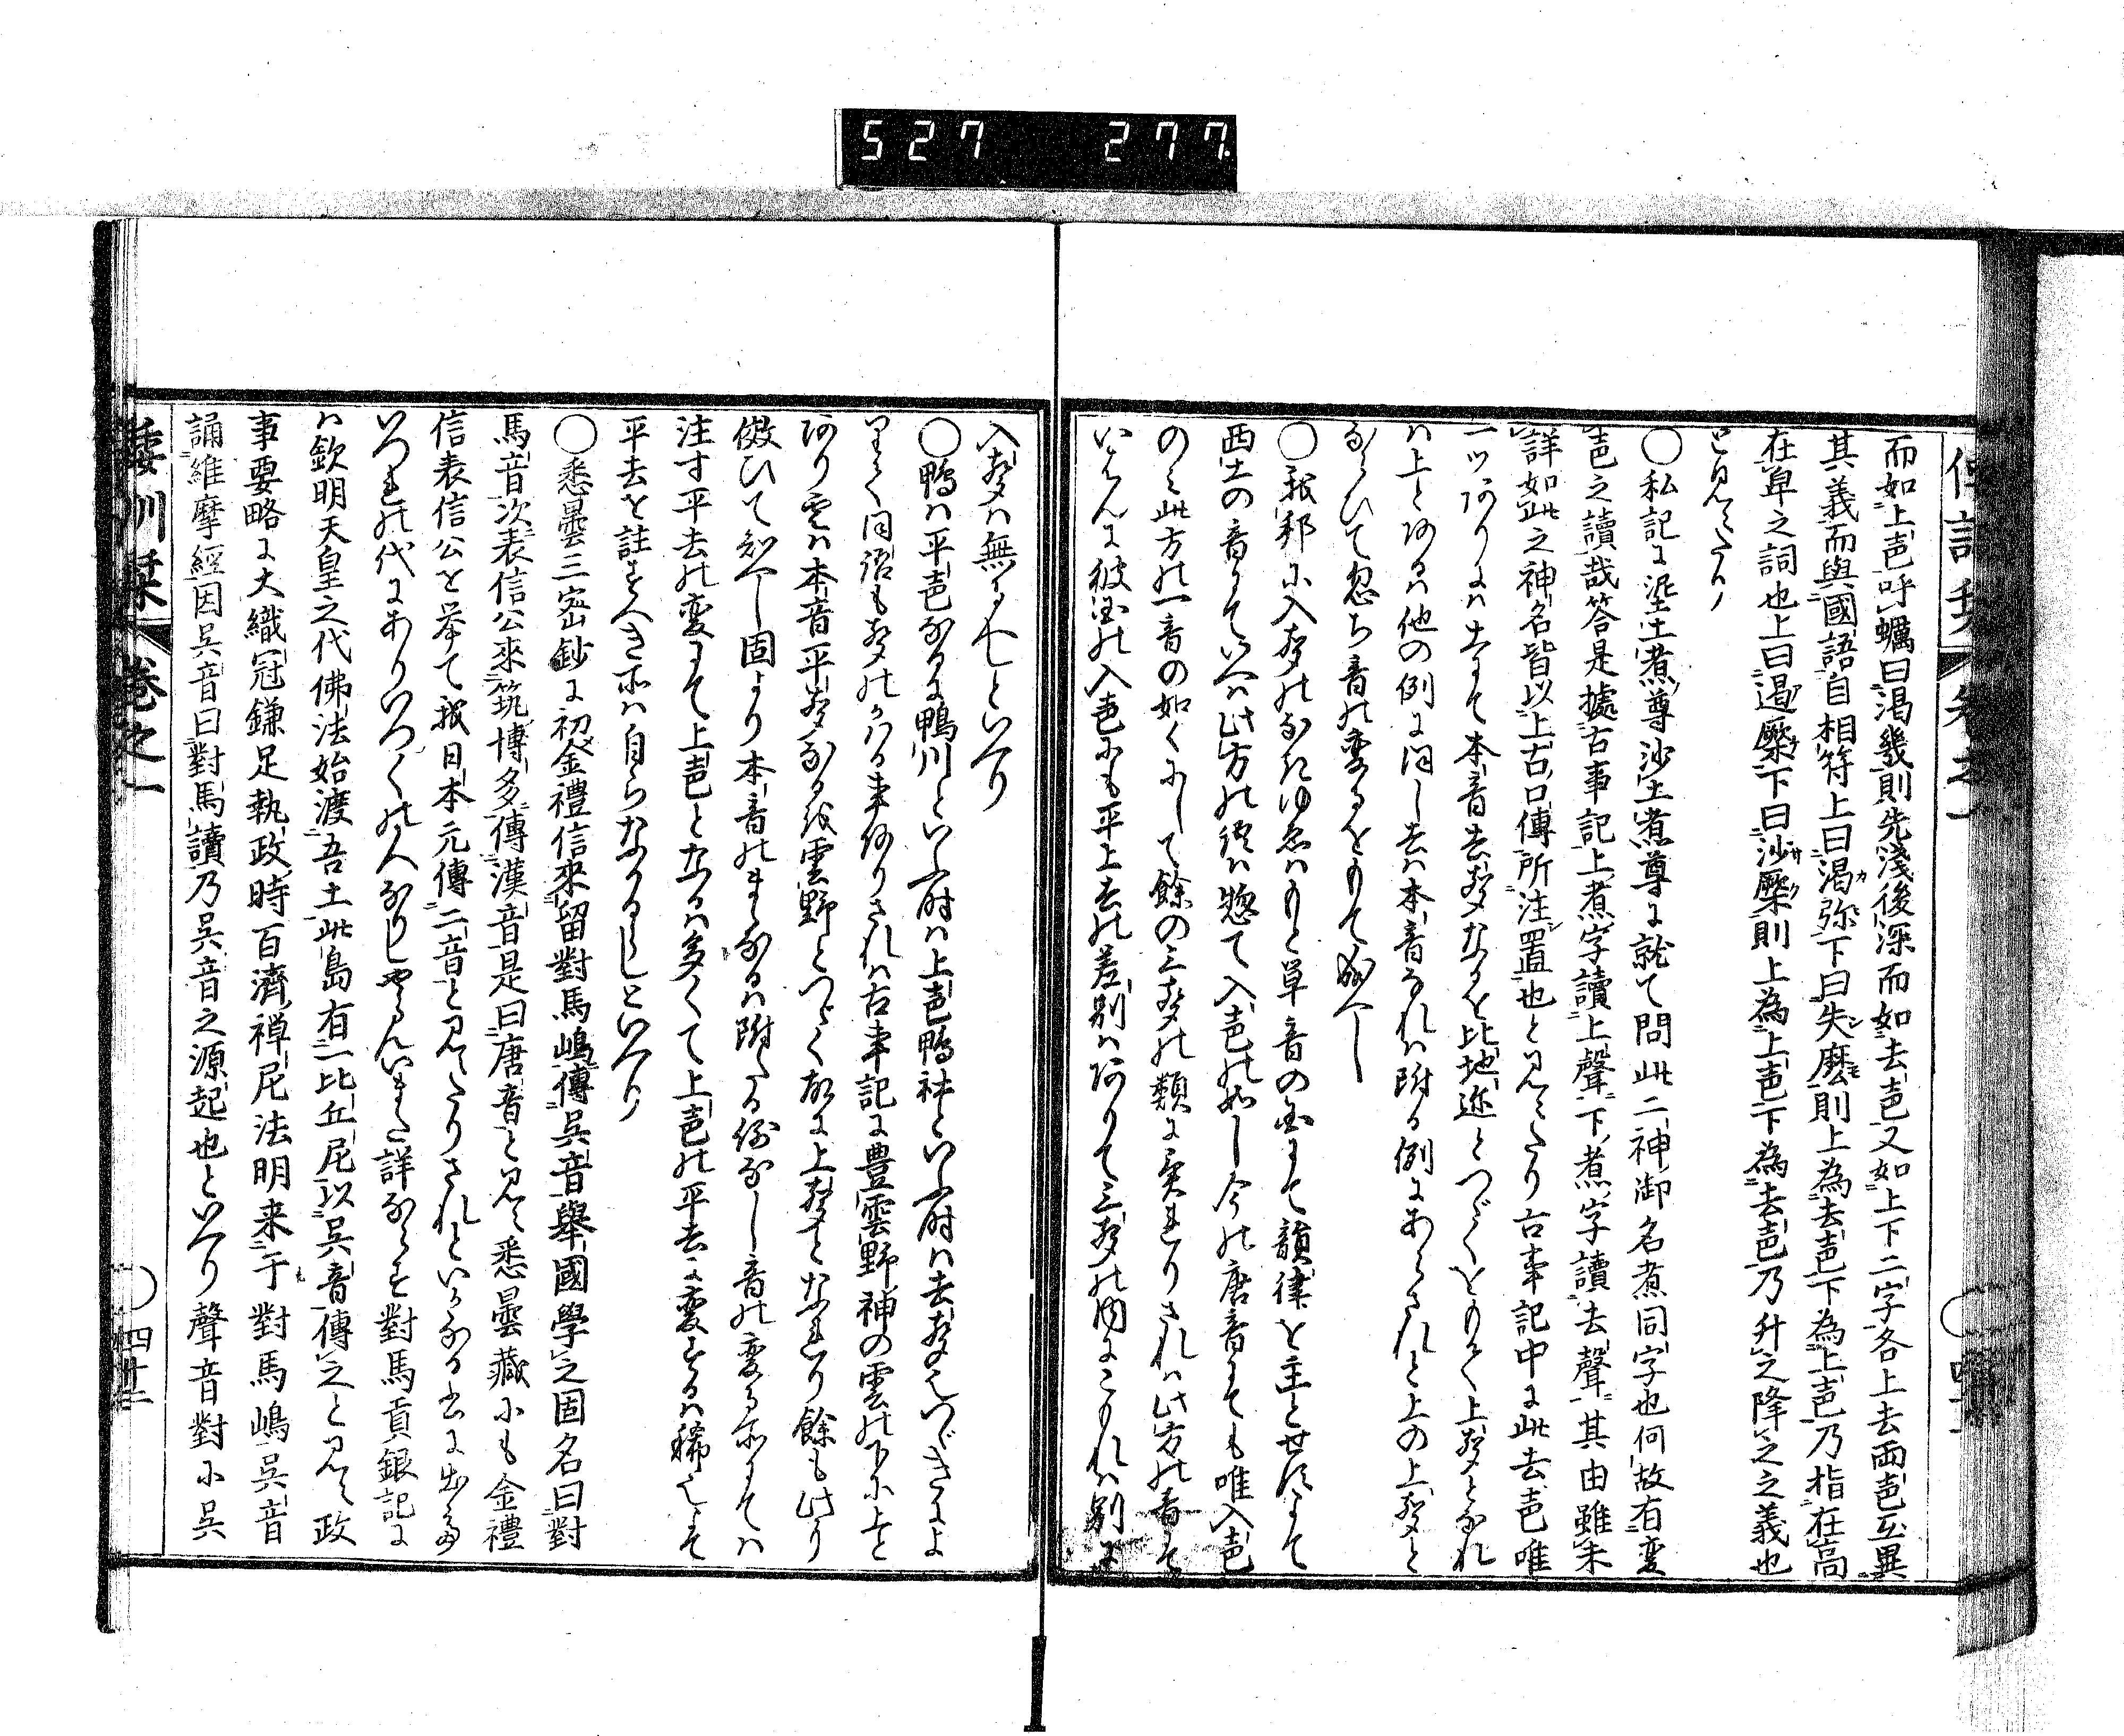 527 277.
而如上声呼蠣曰渇幾則先浅後深而如去声又如上下二字各上去両声互異
其義而與國語自相符上曰渇弥下曰失麽則上為去声下為上声乃指在高
在卑之詞也上曰遏檿下曰沙檿則上為上声下為去声乃升之降之之義也
と見えたり
○私記に埿土煮尊沙土煮尊に就て問此二神御名煮同字也何故有変
声之讀哉答是據古事記上煮字讀上聲下煮字讀去聲其由雖未
詳如此之神名皆以上古口傳所注置也と見えたり古事記中に此去声唯
一ツありこは士にて本音去聲なるを比地迩とつゞくをもて上聲となれ
ハ上とあるハ他の例に同し去ハ本音なれハ附る例にあらされと上の上聲と
ならひて忽ち音の変るをもて也へし
○我邦に入聲のなきゆゑハもと單音の國にて韻律を主とせすよて
西土の音にていへハ此方の詞ハ惣て入声の如し今の唐音にても唯入声
のミ此方の一音の如くにして餘の三聲の類に異れりされハ此方の音にて
いはんに彼国の入声にも平上去の差別ハありて三聲の内にこもれハ別に
入聲ハ無るへしといへり
○鴨ハ平声なるに鴨川といふ時ハ上声鴨社といふ時ハ去聲也つゞきによ
りて同語も聲のかはる事ありされハ古事記に豊雲野神の雲の下に上と
あり雲ハ本音平聲なるを雲野とつゞく故に上聲となれり餘も此り
倣ひて知へし固より本音のまゝなるハ附たる例なし音の変る所にてハ
注す平去の変にて上声となるハ多くて上声の平去に変するハ稀也よて
平去を註すへき所ハ自らなかるらしといへり
○悉曇三密鈔に初金禮信來留對馬嶋傳呉音舉國學之固名曰對
馬音次表信公來筑博多傳漢音是曰唐音と見え悉曇藏にも金禮
信表信公を举て我日本元傳二音と見えたりされといかなる書に出た
いつれの代にありいつくの人なりしやらんいまた詳ならす對馬貢銀記に
ハ欽明天皇之代佛法始渡吾土此島有一比丘尼以呉音傳之と見え政
事要略に大織冠鎌足執政時百濟禅尼法明来于對馬嶋呉音
誦維摩經因呉音曰對馬讀乃呉音之源起也といへり聲音對に呉
倭訓栞 巻之一 ○四十二